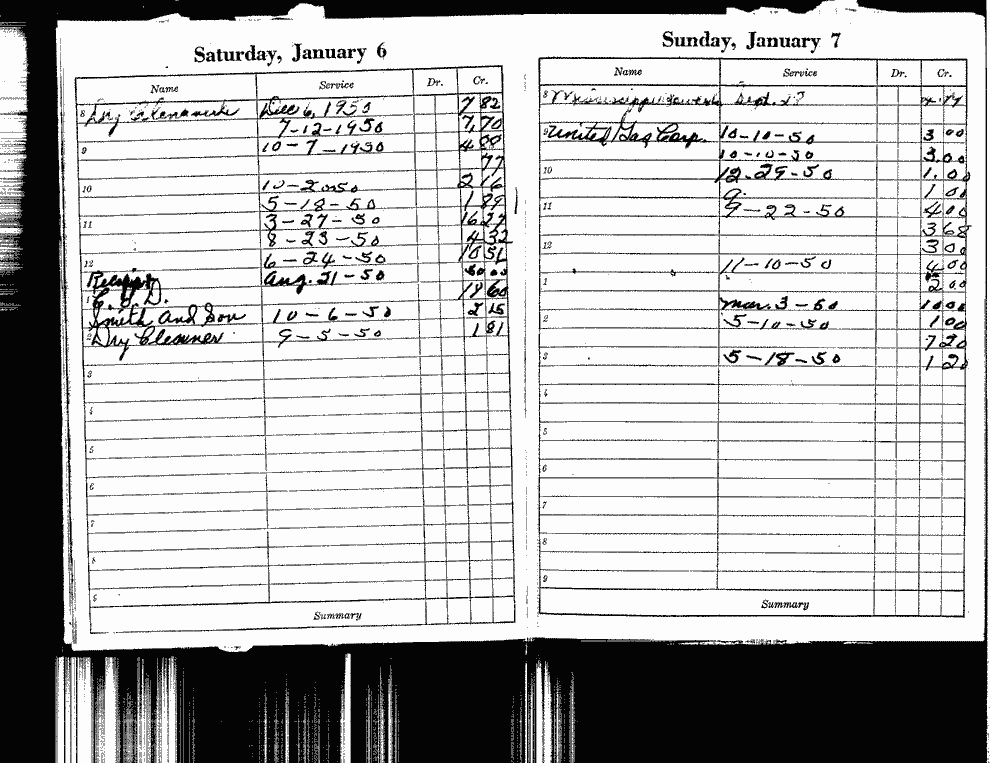 Saturday, January 6
Name Service Dr. Cr.
8 Dry Dec 6, 1950 7 82
7-12-1950 7,70
9 10-7-1950 4 88
77
10 10-2-50 2 16
5-18-50 1 89
11 3-27-50 16 27
8-23-50 4 32
12 6-24-50 10 51
Receipt Aug. 21-50 60 00
1 C. O D. 18 60
Smith and Son 10-6-50 2 15
2 Dry Cleaner 9-5-50 1 81
3
4
5
6
7
8
9
Summary
Sunday, January 7
Name Service Dr. Cr.
8 Mississippi Sept. 27
9 United Gas Corp. 10-10-50 3 00
10-10-50 3.00
10 12-29-50 1.00
9. 1 00
11 9-22-50 4 00
3 68
12 3 00
11-10-50 4 00
1 2 00
Mar. 3-50 10 00
2 5-10-50 1 00
7 20
3 5-18-50 1 20
4
5
6
7
8
9
Summary